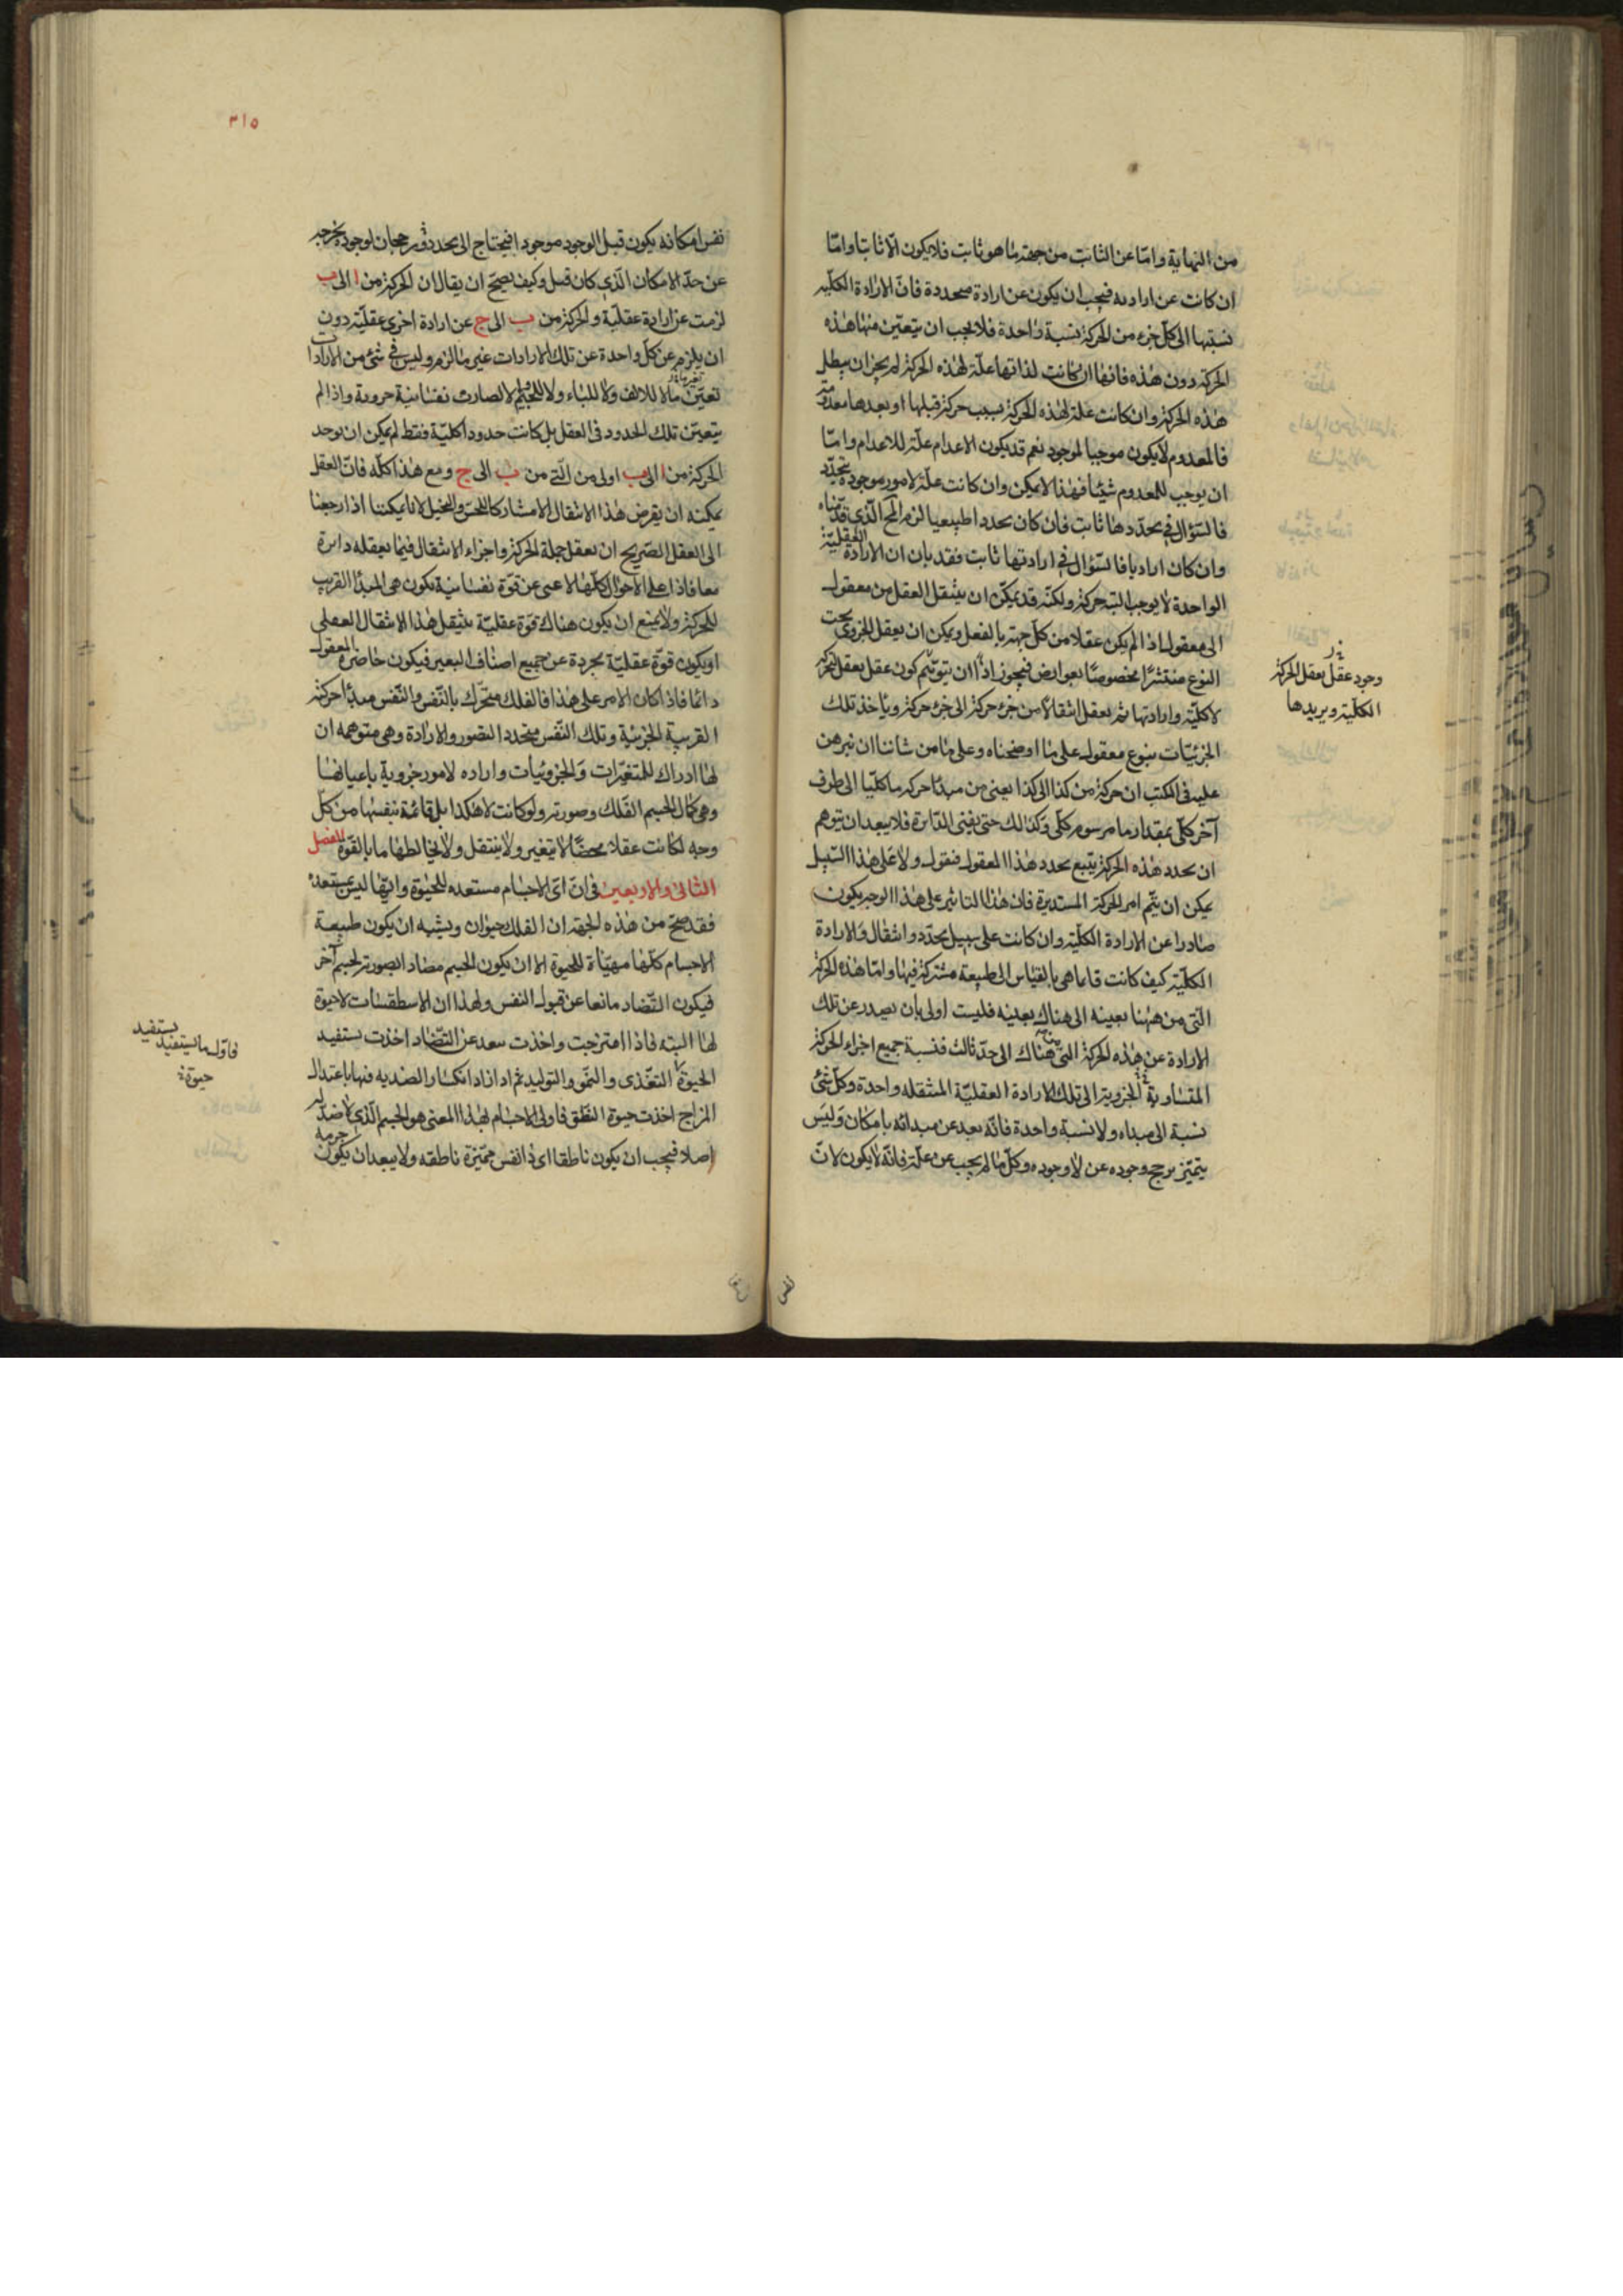 من النهاية واما عن الثابت من جهة ما هو ثابت فلا يكون الا ثابتا واما
ان كانت عن ارادية فيجب ان يكون عن ارادة متجددة فان الارادة الكلية
نسبتها الى كل جزء من الحركة نسبة واحدة فلا يجب ان يتعين منها هذه
الحركة دون هذه فانها ان كانت لذاتها علة لهذه الحركة لم يجز ان يبطل
هذه الحركة وان كانت علة لهذه الحركة بسبب حركة قبلها او بعدها معدومة
فالمعدوم لا يكون موجبا لموجود نعم قد يكون الاعدام علة للاعدام واما
ان يوجب المعدوم شيئا فهذا لا يمكن وان كانت علة لامور موجودة تتجدد
فالسؤال في تجددها ثابت فان كان تجددا طبيعيا لزم المح الذي قدمناه
وان كان اراديا فالسؤال في ارادتها ثابت فقد بان ان الارادة العقلية
الواحدة لا يوجب البتة حركة ولكنه قد يمكن ان ينتقل العقل من معقول
الى معقول اذا لم يكن عقلا من كل جهة بالفعل ويمكن ان يعقل الجزوي تحت
النوع منتشرا مخصوصا بعوارض فيجوز اذا ان يتوهم كون عقل يعقل الحركة
لاكلية وارادتها ثم يعقل انتقالا من جزء حركة الى جزء حركة ويأخذ تلك
وجود عقل يعقل الحركة
الكلية ويريدها
الجزئيات بنوع معقول على ما اوضحناه وعلى ما من شاننا ان نبرهن
عليه في الكتب ان حركة من كذا الى كذا يعني من مبدأ حركة ما كليا الى طرف
آخر كلي بمقدار ما مرسوم كلي وكذلك حتى يفنى الدائرة فلا يبعد ان يتوهم
ان تجدد هذه الحركة يتبع تجدد هذا المعقول فنقول ولا على هذا السبيل
يمكن ان يتم امر الحركة المستديرة فان هذا التاثير على هذا الوجه يكون
صادرا عن الارادة الكلية وان كانت على سبيل تجدد وانتقال والارادة
الكلية كيف كانت فانما هي بالقياس الى طبيعة مشتركة فيها واما هذه الحركة
التي من ههنا بعينه الى هناك بعينه فليست اولى بان يصدر عن تلك
الارادة عن هذه الحركة التي من هناك الى حد ثالث فنسبة جميع اجزاء الحركة
المتساوية الجزوية الى تلك الارادة العقلية المنتقلة واحدة وكل شئ
نسبة الى مبداه ولا نسبة واحدة فانه بعد عن مبدائه بامكان وليس
يتميز ترجح وجوده عن لا وجوده وكل ما لم يجب عن علة فانه لا يكون لان
نفس
٣١٥
نفس امكانه يكون قبل الوجود موجودا فيحتاج الى تجدد رجحان لوجوده يخرجه
عن حد الامكان الذي كان قبل وكيف يصح ان يقال ان الحركة من ا الى ب
لزمت عن ارادة عقلية والحركة من ب الى ج عن ارادة اخرى عقلية دون
ان يلزم عن كل واحدة عن تلك الارادات غير ما لزم وليس في شئ من الارادات
تعين ما لا للالف ولا للباء ولا للجيم والا لصارت نفسانية جروية واذا لم
يتعين تلك الحدود في العقل بل كانت حدودا كلية فقط لم يمكن ان يوجد
الحركة من ا الى ب اولى من التي من ب الى ج ومع هذا كله فان العقل
يمكنه ان يفرض هذا الانتقال الا مشاركا للحس والتخيل لانا يمكننا اذا رجعنا
الى العقل الصريح ان نعقل جملة الحركة واجزاء الانتقال فيما يعقله دائرة
معا فاذا على الاحوال كلها لا غنى عن قوة نفسانية يكون هي المبدأ القريب
للحركة ولا يمنع ان يكون هناك قوة عقلية ينتقل هذا الانتقال العقلي
او يكون قوة عقلية مجردة عن جميع اصناف التغير فيكون حاضرة المعقول
دائما فاذا كان الامر على هذا فالفلك متحرك بالنفس والنفس مبدأ حركته
القريبة الجزئية وتلك النفس متجدد التصور والارادة وهي متوهمه ان
لها ادراك للمتغيرات والجزويات وارادة لامور جزوية باعيانها
وهي كمال الجسم الفلك وصورته ولو كانت لا هكذا بل قائمة بنفسها من كل
وجه لكانت عقلا محضا لا يتغير ولا ينتقل ولا يخالطها ما بالقوة الفصل
الثاني والاربعين في ان اي الاجسام مستعده للحيوة وايها ليس بمستعد
فقد صح من هذه الجهة ان الفلك حيوان ويشبه ان يكون طبيعة
الاجسام كلها مهياة للحيوة الا ان يكون الجسم مضاد الصورة لجسم آخر
فيكون التضاد مانعا عن قبول النفس ولهذا ان الاسطقسات لا حيوة
لها البتة فاذا امتزجت واخذت تبعد عن التضاد اخذت تستفيد
فاول ما يستفيد
حيوة
الحيوة التغذي والنمو والتوليد ثم اذا زاد انكسار الضديه فيها باعتدال
المزاج اخذت حيوة النطق فاولى الاجسام لهذا المعنى هو الجسم الذي لا ضد له
اصلا فيجب ان يكون ناطقا اي ذا نفس مميزة ناطقه ولا يبعد ان يكون